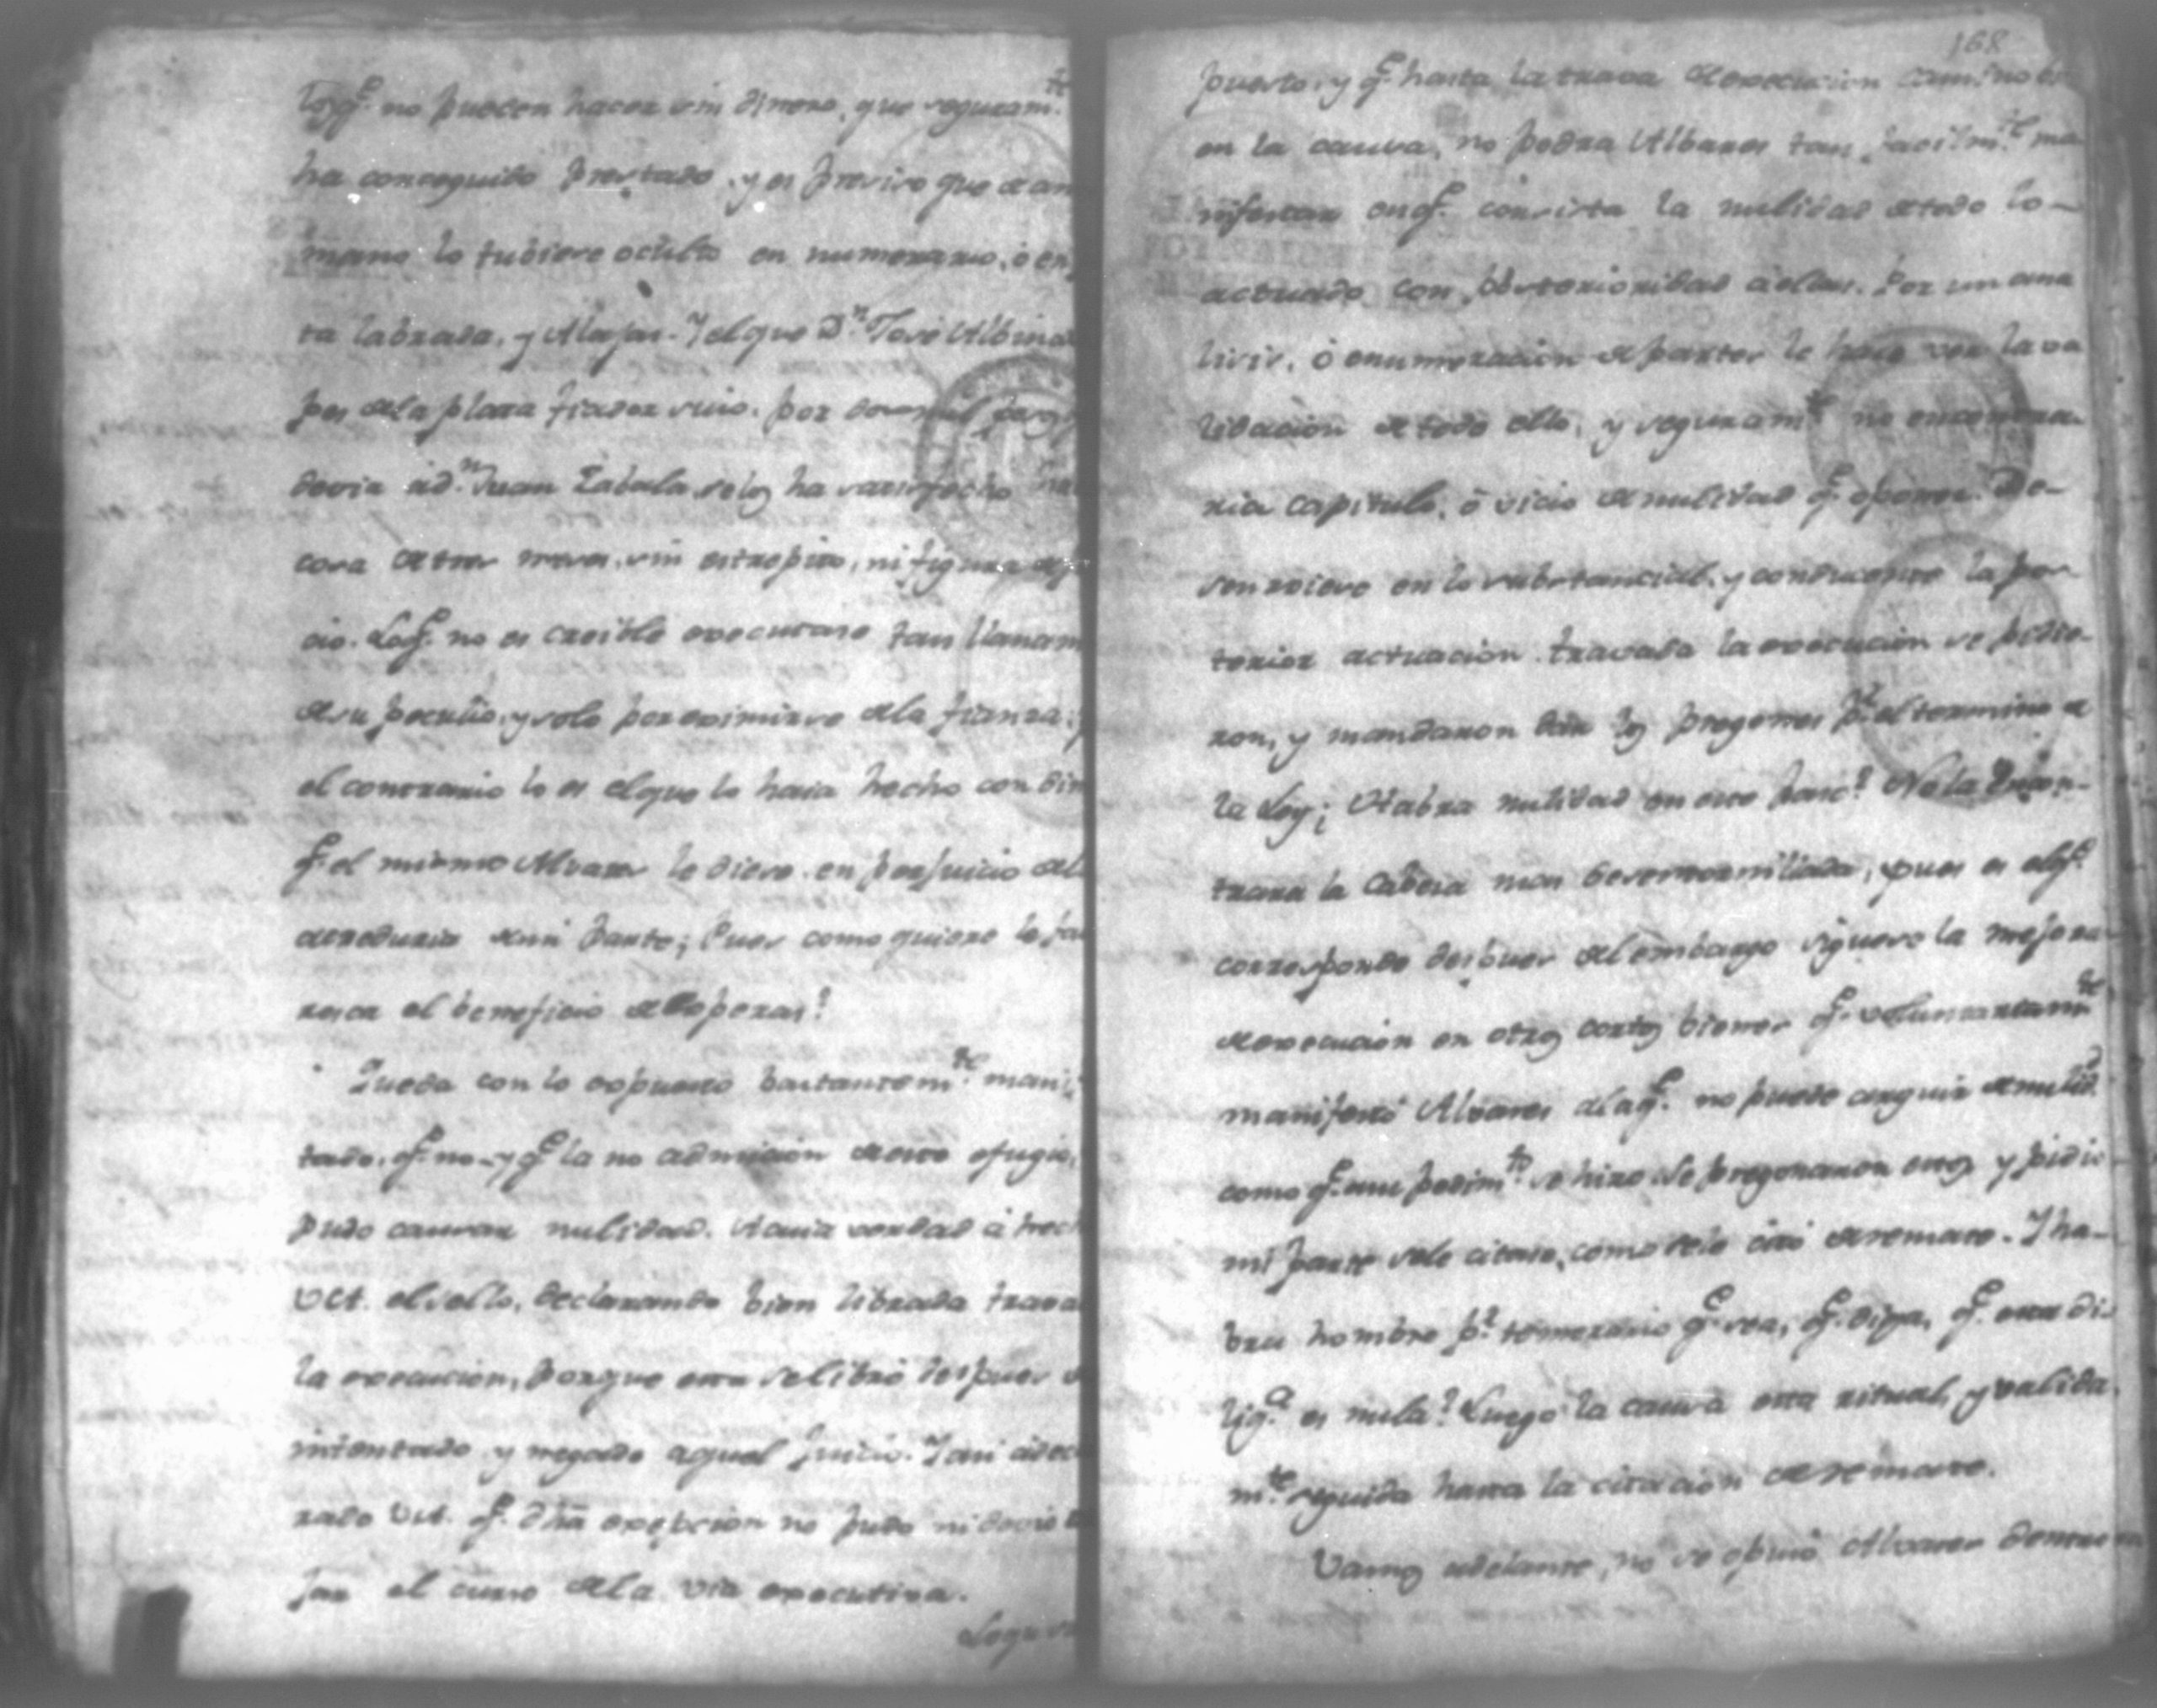 los q.e no pueden hacer sin dinero, que seguram.te
ha conseguido prestado, y es preciso que de an
mano lo tubiere oculto en numerario, ò en
ta labrada, y Alajas. Y el que D.n José Albin
pos de la plaza fiador suio, por
devia àd.n Juan Zabala, selos ha satisfecho
cosa de tres meses, sin estrepito, ni figura de
cio. Loq.e no es creible executase tan llanam
de su peculio, y solo por eximirse dela fianza,
el contrario lo es elque lo haia hecho con din
q.e el mismo Alvares le diese en perjuicio del
acreeduria de mi parte; Pues como quiere le fa
resca el beneficio de esperas?
Queda con lo expuesto bastantem.te manif
tado, q.e no y q.e la no admicion de este efugio,
pudo causar nulidad. Hacia verdad à
Vct. el sello, declarando bien librada trava
la execucion, porque esta se libró despues d
intentado y negado aquel Juicio. Y asi
rado Vct. q.e dha excepcion no pudo ni devio
jar el curso dela via executiva.
Loque
168
puesto, y q.e hasta la trava de execucion
en la causa, no podra Albares tan facilm.te ma
nifestar enq.e consista la nulidad de todo lo
actuado con posterioridad à ella. Por un ana
livis, ò enumeracion de partes le haré ver la va
lidacion de todo ello, y seguram.te no encontra
ria capitulo, ò vicio de nulidad q.e oponer. De-
senrolero en lo substancial, y conducente la pos-
terior actuacion. travada la execucion se pidie-
ron, y mandaron dar los pregones p.r el termino de
la Ley; Habra nulidad en este paso? No la encon-
trara la Cabesa mas desentornillada, pues es elq.e
corresponde despues del embargo siguese la mejora
de execucion en otros cortos bienes q.e voluntariam.te
manifestó Alvares ala q.e no puede arguir de nulid.d
como q.e asu pedim.to se hizo. Se pregonaron estos y pidio
mi parte sele citase, como selo citó de remate. Y ha-
bra hombre p.r temerario q.e sea, q.e diga, q.e esta di-
lig.a es nula? Luego la causa esta ritual, y valida
m.te seguida hasta la citacion de remate.
Vamos adelante, no se opuso Alvares dentro